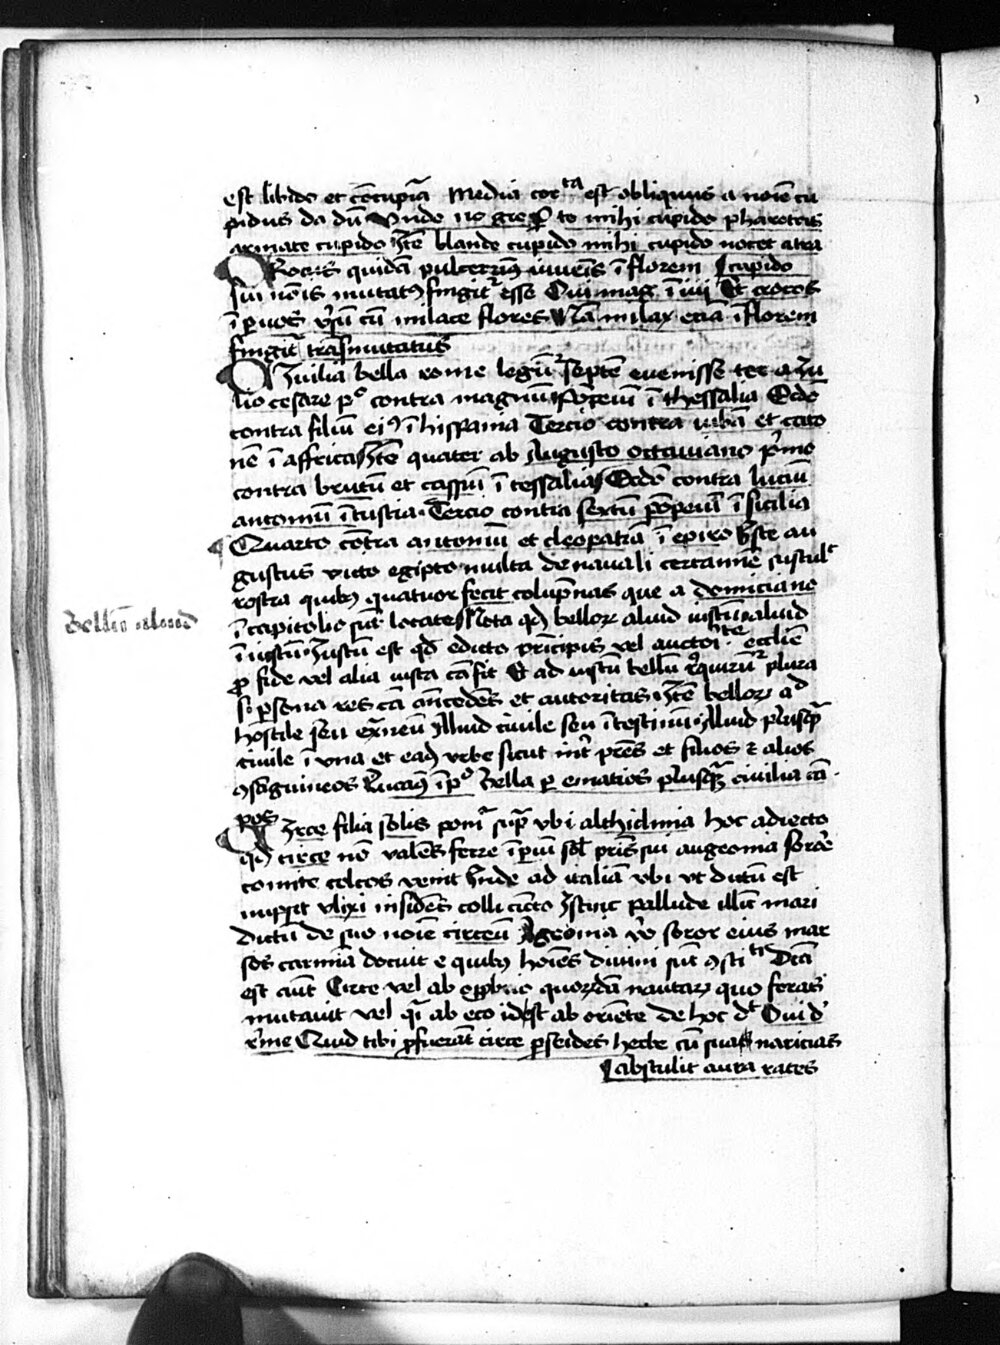 est libido et cōcupīa Media corta est obliquus a noīe cu
pidus da dū Unde ŋ gre ꝑ te mihi cupido pharetris
armate cupido Itē blande cupido mihi cupido nocet atra
CRocus quidā pulcerrimꝰ iuuenis ī florem cupido
sui nōis mutatꝰ fingitur esse Oui mag ī iiij Et crocos
ī ꝑuos cū milace flores Nā milax etiā ī florem
fingitur trāsmutatus
CIuilia bella rome legūtur septē euenisse ter a iu
lio cesare po contra magnū Pōpeiū ī thessalia Scdo
contra filiū eiꝰ ī hispania Tercio contra iubā et cato
nē ī affrica Itē quater ab Augusto octauiano pimo
contra brutū et cassiū ī tessalia Scdo contra luciū
antoniū ī tustia Tercio contra sextū pōpeiū ī sicilia
Quarto cōtra antoniū et cleopatrā ī epiro Iste au
gustus victo egipto multa de nauali certamīe sustult
rostra quibꝫ quatuor fecit colupnas que a domiciano
ī capitolio sūt locate Nota qd belloꝝ aliud iustū aliud
ī iustū Iustū est qd edicto pncipis vel auctoīte ecclīe
ꝓ fide vel alia iusta cā fit Et ad iustū bellū rꝗruntur plura
s ꝑsona res cā ancedēs et autoritas Itē belloꝝ ad
hostile seu exneū Illud ciuile seu ītestinū Illud plusqꝫ
ciuile ī una et eadꝫ vrbe sicut inter pres et filios ⁊ alios
ꝯsāguineos Lucanꝰ ī po Bella ꝑ ematios plusqꝫ ciuilia cā
pos
CIrce filia solis ponitur supra vbi althidinia hoc adiecto
qd circe nō valēs ferre ī periū sol pris sui augeonia sorore
comite colcos venit Inde ad italiā vbi ut dictū est
nupsit vlixi insidēs colli circeo Istinc pallude illic mari
dictū de suo noīe circeū Ageonia vo soror eius mar
sos carmīa docuit e quibꝫ hoīes diuini sūt ꝯsti Dcā
est aūt Circe vel ab opprobrio quorūdā nautaꝝ quo feras
mutauit vel qa ab eco id est ab oriēte de hoc dt Ouid
rme Quid tibi ꝓfuerūt circe ꝑseides herbe cū sua naricias
abstulit aura rates
Bellū aliud